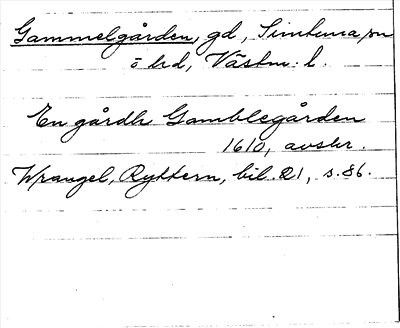 Gammelgården, gd, Simtuna sn
ö hd, Västm: l.
En gårdh Gamblegården
1610, avskr.
Wrangel, Ryttern, bil. 21, s. 86.